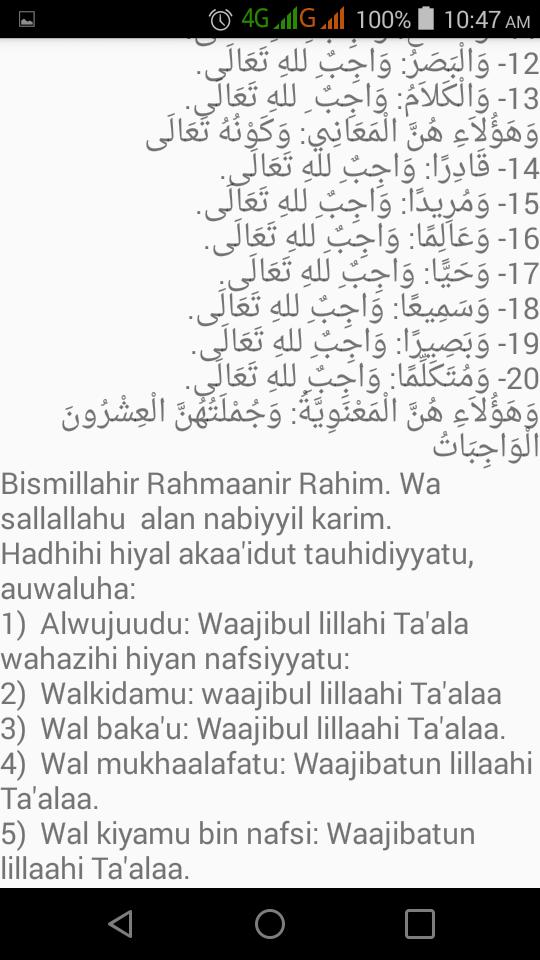 4G G 100% 10:47 AM
12- وَالْبَصَرُ: وَاجِبٌ ِللهِ تَعَالَى.
13- وَالْكَلاَمُ: وَاجِبٌ ِللهِ تَعَالَى.
وَهَؤُلاَءِ هُنَّ الْمَعَانِي: وَكَوْنُهُ تَعَالَى
14- قَادِرًا: وَاجِبٌ ِللهِ تَعَالَى.
15- وَمُرِيدًا: وَاجِبٌ ِللهِ تَعَالَى.
16- وَعَالِمًا: وَاجِبٌ ِللهِ تَعَالَى.
17- وَحَيًّا: وَاجِبٌ ِللهِ تَعَالَى.
18- وَسَمِيعًا: وَاجِبٌ ِللهِ تَعَالَى.
19- وَبَصِيرًا: وَاجِبٌ ِللهِ تَعَالَى.
20- وَمُتَكَلِّمًا: وَاجِبٌ ِللهِ تَعَالَى.
وَهَؤُلاَءِ هُنَّ الْمَعْنَوِيَّةُ: وَجُمْلَتُهُنَّ الْعِشْرُونَ
الْوَاجِبَاتُ
Bismillahir Rahmaanir Rahim. Wa
sallallahu  alan nabiyyil karim.
Hadhihi hiyal akaa'idut tauhidiyyatu,
auwaluha:
1)  Alwujuudu: Waajibul lillahi Ta'ala
wahazihi hiyan nafsiyyatu:
2)  Walkidamu: waajibul lillaahi Ta'alaa
3)  Wal baka'u: Waajibul lillaahi Ta'alaa.
4)  Wal mukhaalafatu: Waajibatun lillaahi
Ta'alaa.
5)  Wal kiyamu bin nafsi: Waajibatun
lillaahi Ta'alaa.